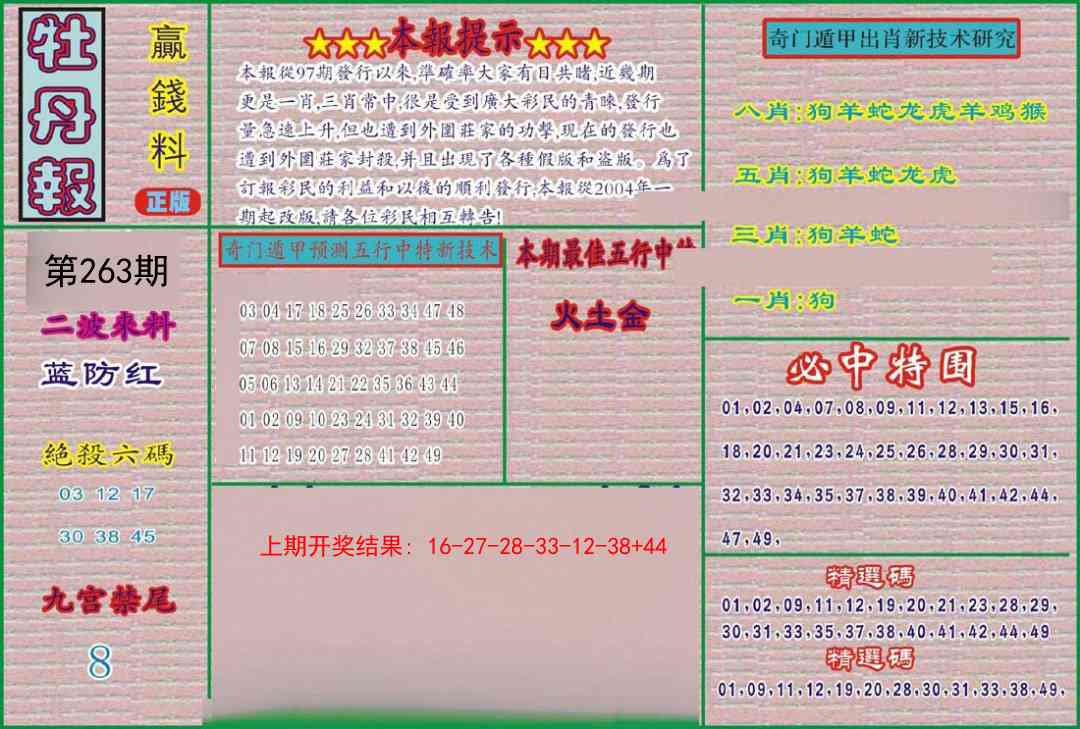 牡丹報
贏錢料
正版
★★★本報提示★★★
本報從97期發行以來,準確率大家有目共睹,近幾期
更是一肖,三肖常中,很是受到廣大彩民的青睞,發行
量急速上升,但也遭到外圍莊家的功擊,現在的發行也
遭到外圍莊家封殺,并且出現了各種假版和盗版。爲了
訂報彩民的利益和以後的順利發行,本報從2004年一
期起改版,請各位彩民相互轉告!
奇门遁甲出肖新技术研究
八肖:狗羊蛇龙虎羊鸡猴
五肖:狗羊蛇龙虎
三肖:狗羊蛇
一肖:狗
第263期
二波來料
蓝防红
絕殺六碼
03 12 17
30 38 45
九宫禁尾
8
奇门遁甲预测五行中特新技术
03 04 17 18 25 26 33 34 47 48
07 08 15 16 29 32 37 38 45 46
05 06 13 14 21 22 35 36 43 44
01 02 09 10 23 24 31 32 39 40
11 12 19 20 27 28 41 42 49
本期最佳五行中
火土金
上期开奖结果: 16-27-28-33-12-38+44
必中特围
01,02,04,07,08,09,11,12,13,15,16,
18,20,21,23,24,25,26,28,29,30,31,
32,33,34,35,37,38,39,40,41,42,44,
47,49,
精選碼
01,02,09,11,12,19,20,21,23,28,29,
30,31,33,35,37,38,40,41,42,44,49
精選碼
01,09,11,12,19,20,28,30,31,33,38,49,